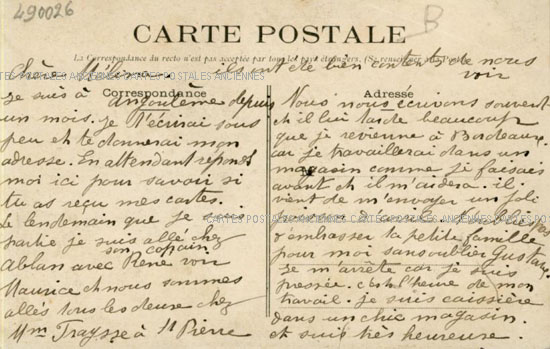 490026
B
CARTE POSTALE
La Correspondance du recto n'est pas acceptée par tous les pays étrangers. (Se renseigner à la Poste)
Chère
ils ont été bien contents de nous
voir
CARTES POSTALES ANCIENNES
Correspondance
Je suis à Angoulême depuis
un mois. Je t'écrirai sous
peu et te donnerai mon
adresse. En attendant réponds
moi ici pour savoir si
tu as reçu mes cartes.
Le lendemain que je suis
partie je suis allé chez
son copain
Ablan avec René voir
Maurice et nous sommes
allés tous les deux chez
Mme Traysse à St Pierre
Adresse
Nous nous écrivons souvent
et il lui tarde beaucoup
que je revienne à Bordeaux
car je travaillerai dans un
magasin comme je faisais
avant et il m'aidera. il
vient de m'envoyer un joli
d'embrasser ta petite famille
pour moi sans oublier Gustave
Je m'arrête car je suis
pressée. c'est l'heure de mon
travail. je suis caissière
dans un chic magasin.
et suis très heureuse.